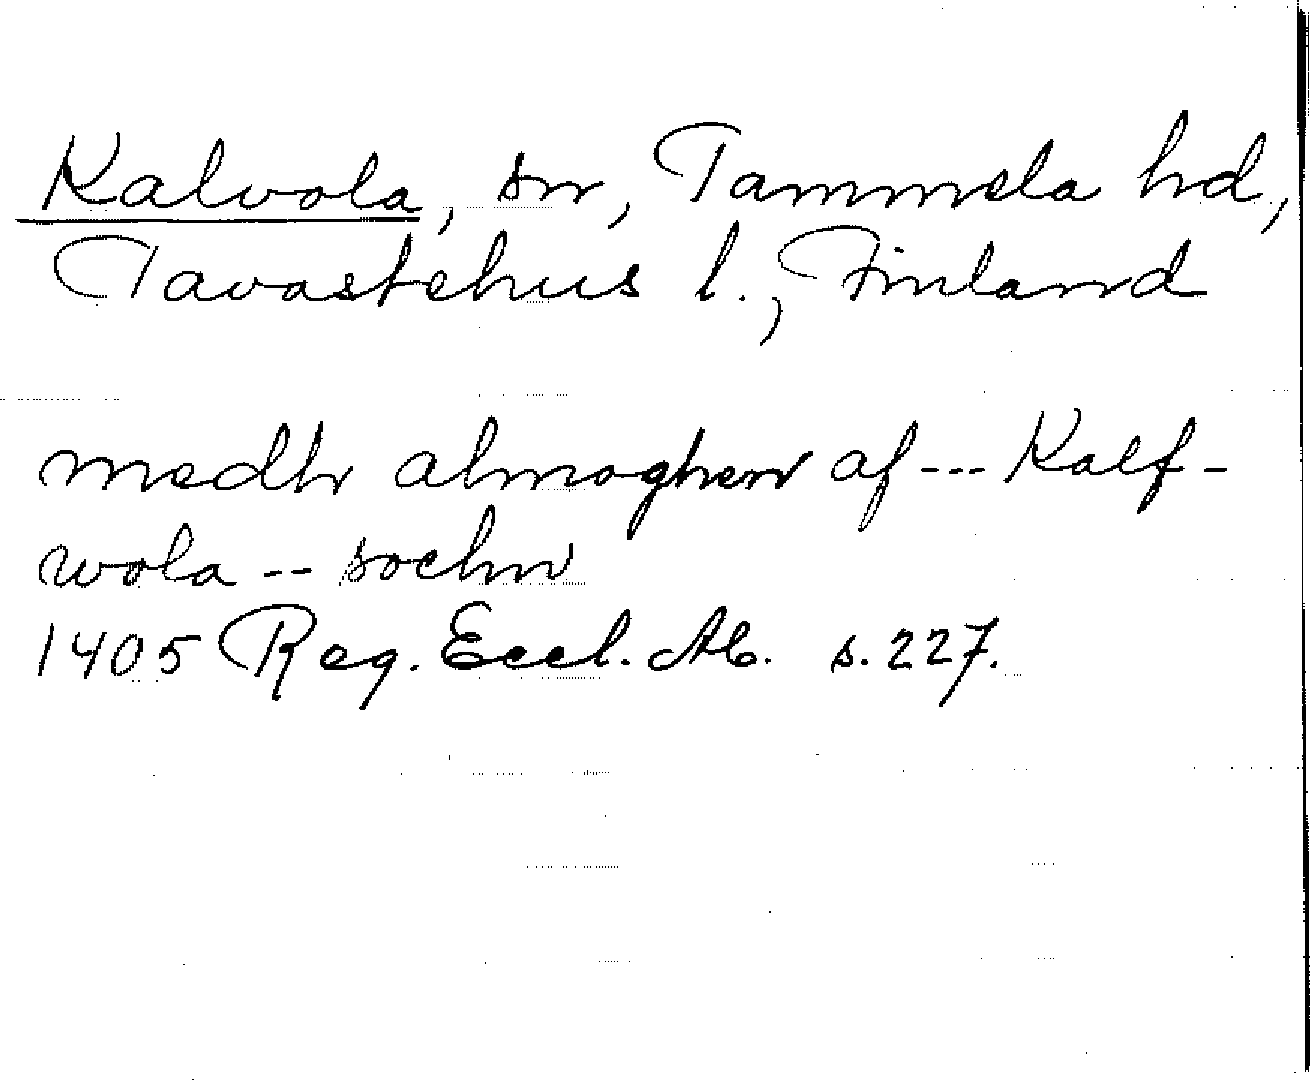 Kalvola, sn, Tammela hd,
Tavastehus l., Finland
medh almoghen af --- Kalf-
wola -- sochn
1405 Reg. Eccl. Ab. s. 227.